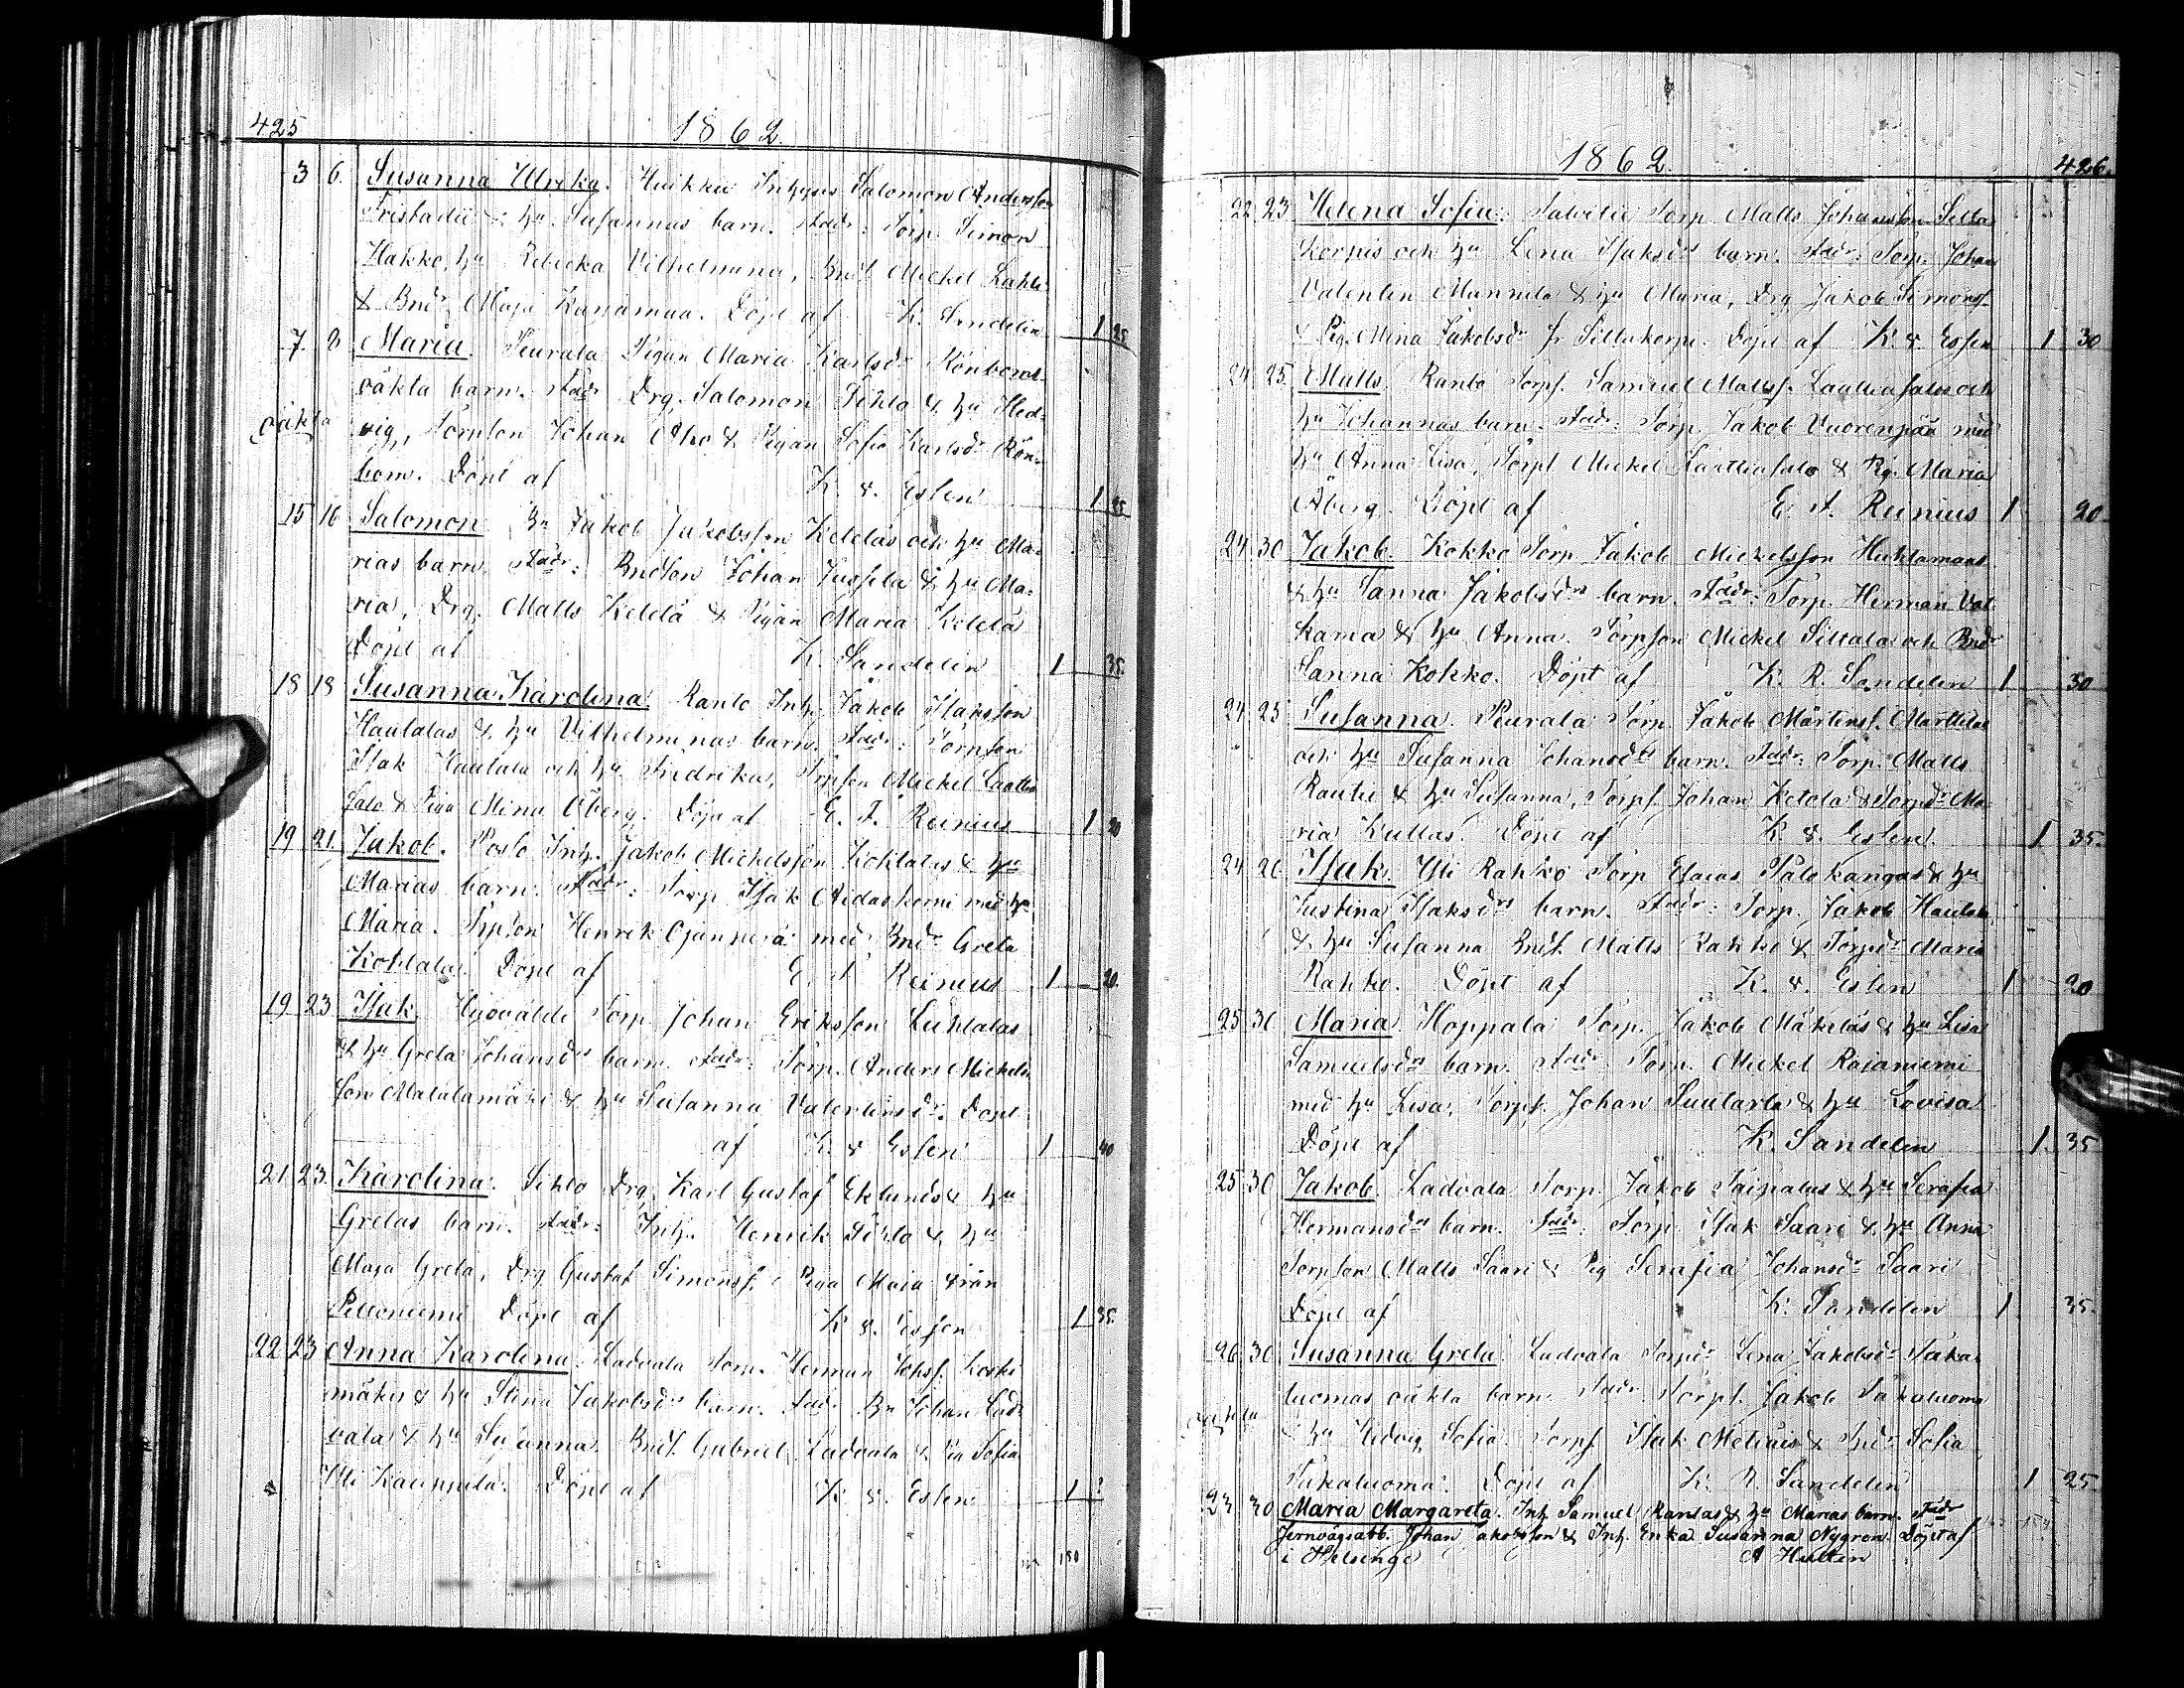 425
1862
3 6. Susanna Ulrika. Heikkii Inhyses Salomon Andersson
Tristadii & hu Susannas barn. Fadr: Torp. Simon
Hakko, hu Rebecka Vilhelmina, Bnds. Mickel Lahti
& Bndr Maja Kanamaa. Döpt af K. Sandelin 1 25
7. 8 Maria. Peurala Pigan Maria Karlsdr Rönboms
oäkta barn. Fadr Drg. Salomon Sihlo & hu Hed-
oäkta
vig, Torpson Johan Aho & Pigan Sofia Karlsdr Rön-
bom. Döpt af K. v. Essen 1
15 16 Salomon Bn Jakob Jakobsson Ketelas och hu Ma-
rias barn. Fadr: Bndson Johan Jussila & hu Ma-
ria, Drg. Matts Ketela & Pigan Maria Ketela
Döpt af K. Sandelin 1 35.
18 18 Susanna Karolina. Ranto Inh. Jakob Isaksson
Hautalas & hu Vilhelminas barn. Fadr: Torpson
Isak Hautala och hu Fredrika, Torpson Mickel Laattia
salo & Piga Mina Åberg. Döpt af E. F. Reinius 1 20
19 21. Jakob. Posto Inh. Jakob Mickelsson Kohtalas & hu
Marias barn. Fadr: Torp Isak Aidasniemi med hu
Maria. Torpson Henrik Ojanperä med Bndr Greta
Kohtala. Döpt af E. F. Reinius 1 20.
19 23 Isak. Hyövälti Torp Johan Eriksson Luhtalas
& hu Greta Johansdrs barn. Fadr: Torp. Anders Mickels
son Matalamäki & hu Susanna Valentinsdr. Döpt
af K. v. Essen 1 40
21 23. Karolina. Sihto Drg. Karl Gustaf Eklunds & hu
Gretas barn. Fadr: Inh. Henrik Sihto & hu
Maja Greta, Drg Gustaf Simonss. Piga Maja från
Pettoniemi Döpt af K. v. Essen 1 35.
22 23 Anna Karolina. Ladvala Torp. Herman Johss. Koski
mäkis & hu Stina Jakobsdrs barn. Fadr Bn Johan Lad-
vala & hu Susanna. Bnds. Gabriel Ladvala & Sofia
Yli Kauppila. Döpt af K. v. Essen 1
150
1862.
426.
22 23 Helena Sofia. Salvitie Torp. Matts Johansson Silta
korpis och hu Lena Isaksdrs barn. Fadr: Torp. Johan
Valentin Mannila & hu Maria, Drg Jakob Simonss
& Pig. Mina Jakobsdr fr Siltakorpi. Döpt af K. v. Essen 1 30
24 25. Matts. Ranto Torps. Samuel Mattss. Laattiasalos och
hu Johannas barn. Fadr: Torp. Jakob Vuorenpää med
hu Anna Lisa, Torps Mickel Laattiasalo & Pig. Maria
Åberg. Döpt af E. F. Reinius 1 20
24 30 Jakob. Kokko Torp Jakob Mickelsson Huhtamaas
& hu Sanna Jakobsdrs barn. Fadr: Torp. Herman Val
kama & hu Anna. Torpson Mickel Siltala och Bndr
Sanna Kokko. Döpt af K. R. Sandelin 1 30
24 25 Susanna. Peurala Torp. Jakob Mårtenss. Marttilas
och hu Susanna Johansdrs barn. Fadr: Torp. Matts
Rautu & hu Susanna, Torps. Johan Ketola & Torpdr Ma-
ria Kullas. Döpt af K. v. Essen. 1 35.
24 26 Isak. Yli Rahko Torp Esaias Palokangas & hu
Justina Isaksdrs barn. Fadr: Torp. Jakob Hautala
& hu Susanna Bnds. Matts Rahko & Torpdr Maria
Rahko. Döpt af K. v. Essen 1 20
25 30 Maria. Hoppala Torp. Jakob Mäkeläs & hu Lisa
Samuelsdrs barn. Fadr: Torp. Mickel Rajaniemi
med hu Lisa, Torps. Johan Suutarla & hu Lovisa
Döpt af K. Sandelin 1. 35
25 30 Jakob. Ladvala Torp. Jakob Taipalus & hu Serafia
Hermansdrs barn. Fadr: Torp. Isak Saari & hu Anna
Torpson Matts Saari & Pig Serafia Johansdr Saari
Döpt af K. Sandelin 1 35.
26 30 Susanna Greta. Ladvala Torpdr Lena Jakobsdr Taka-
luomas oäkta barn. Fadr Torps. Jakob Takaluoma
oäkta
& hu Hedvig Sofia. Torps Isak Metsäis & Sofia
Takaluoma. Döpt af K. R. Sandelin 1 25.
23 30 Maria Margareta. Inh. Samuel Rantas & hu Marias barn. Fadr
Jernvägsarb. Johan Jakobsson & Inh. Enka Susanna Nygren Döpt af
i Helsinge A Hulten